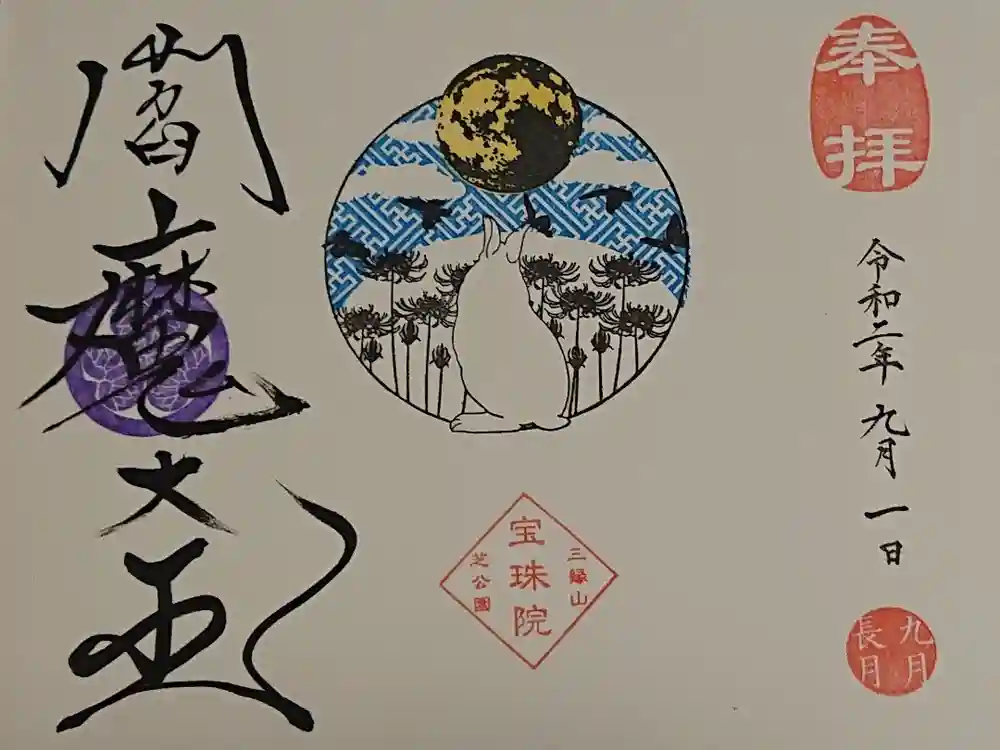 奉拝
令和二年 九月一日
九月
長月
三縁山
宝珠院
芝公園
閻魔大王